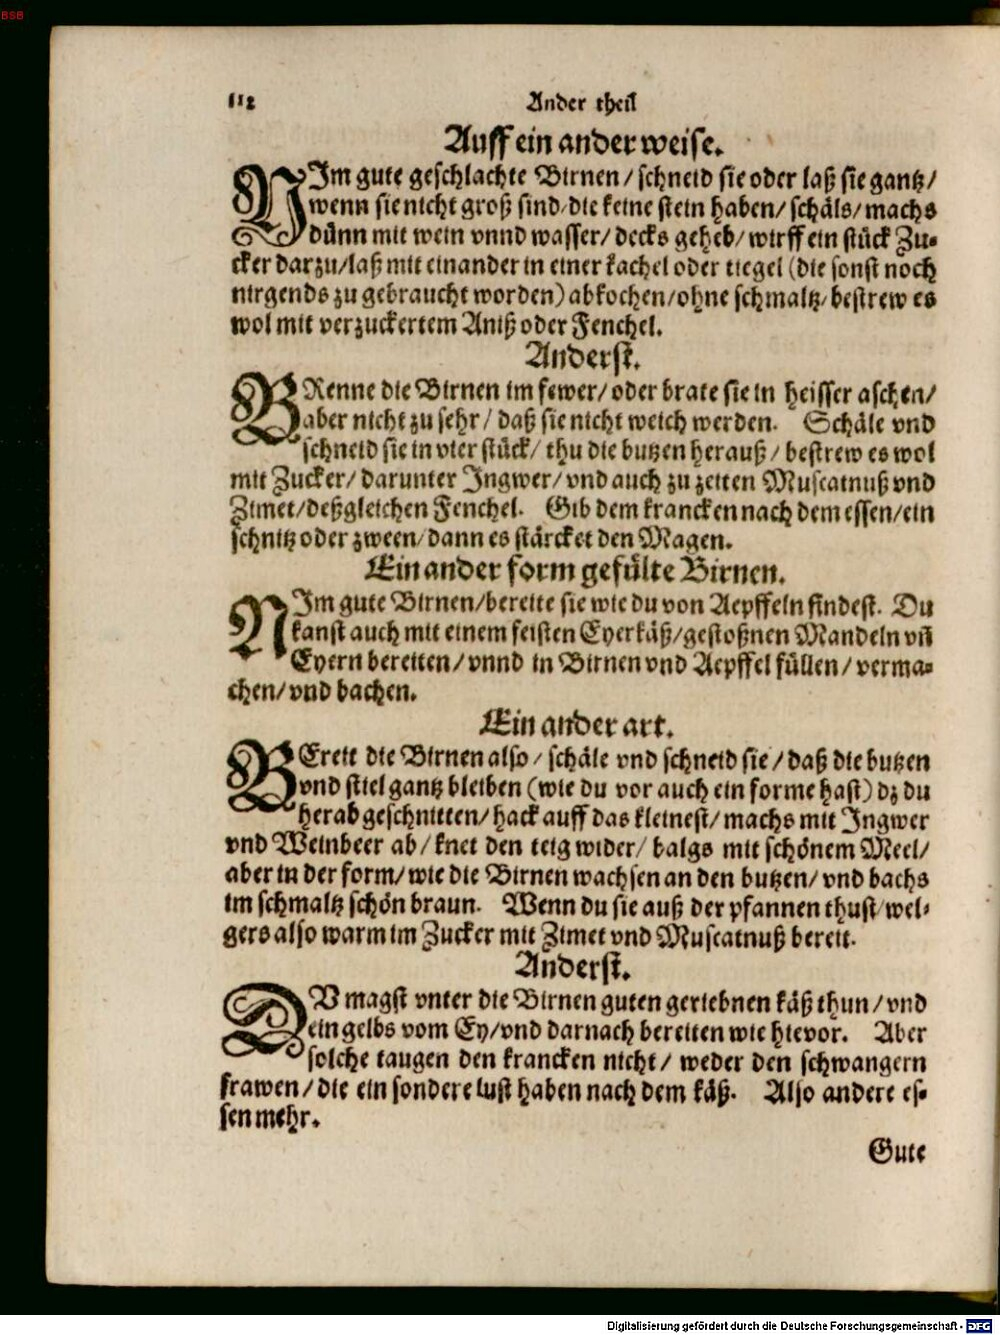 BSB
112 Ander theil
Auff ein ander weise.
NIm gute geschlachte Birnen/ schneid sie oder laß sie gantz/
wenn sie nicht groß sind/ die keine stein haben/ schäls/ machs
dünn mit wein vnnd wasser/ decks geheb/ wirff ein stück Zu-
cker darzu/ laß mit einander in einer kachel oder tiegel (die sonst noch
nirgends zu gebraucht worden) abkochen/ ohne schmaltz/ bestrew es
wol mit verzuckertem Aniß oder Fenchel.
Anderst.
BRenne die Birnen im fewer/ oder brate sie in heisser aschen/
aber nicht zu sehr/ daß sie nicht weich werden. Schäle vnd
schneid sie in vier stück/ thu die butzen herauß/ bestrew es wol
mit Zucker/ darunter Ingwer/ vnd auch zu zeiten Muscatnuß vnd
Zimet/ deßgleichen Fenchel. Gib dem krancken nach dem essen/ ein
schnitz oder zween/ dann es stärcket den Magen.
Ein ander form gefülte Birnen.
NIm gute Birnen/ bereite sie wie du von Aepffeln findest. Du
kanst auch mit einem feisten Eyerkäß/ gestoßnen Mandeln vñ
Eyern bereiten/ vnnd in Birnen vnd Aepffel füllen/ verma-
chen/ vnd bachen.
Ein ander art.
BEreit die Birnen also/ schäle vnd schneid sie/ daß die butzen
vnd stiel gantz bleiben (wie du vor auch ein forme hast) dz du
herab geschnitten/ hack auff das kleinest/ machs mit Ingwer
vnd Weinbeer ab/ knet den teig wider/ balgs mit schönem Meel/
aber in der form/ wie die Birnen wachsen an den butzen/ vnd bachs
im schmaltz schön braun. Wenn du sie auß der pfannen thust/ wel-
gers also warm im Zucker mit Zimet vnd Muscatnuß bereit.
Anderst.
DV magst vnter die Birnen guten geriebnen käß thun/ vnd
ein gelbs vom Ey/ vnd darnach bereiten wie hievor. Aber
solche taugen den krancken nicht/ weder den schwangern
frawen/ die ein sondere lust haben nach dem käß. Also andere es-
sen mehr.
Gute
Digitalisierung gefördert durch die Deutsche Forschungsgemeinschaft - DFG